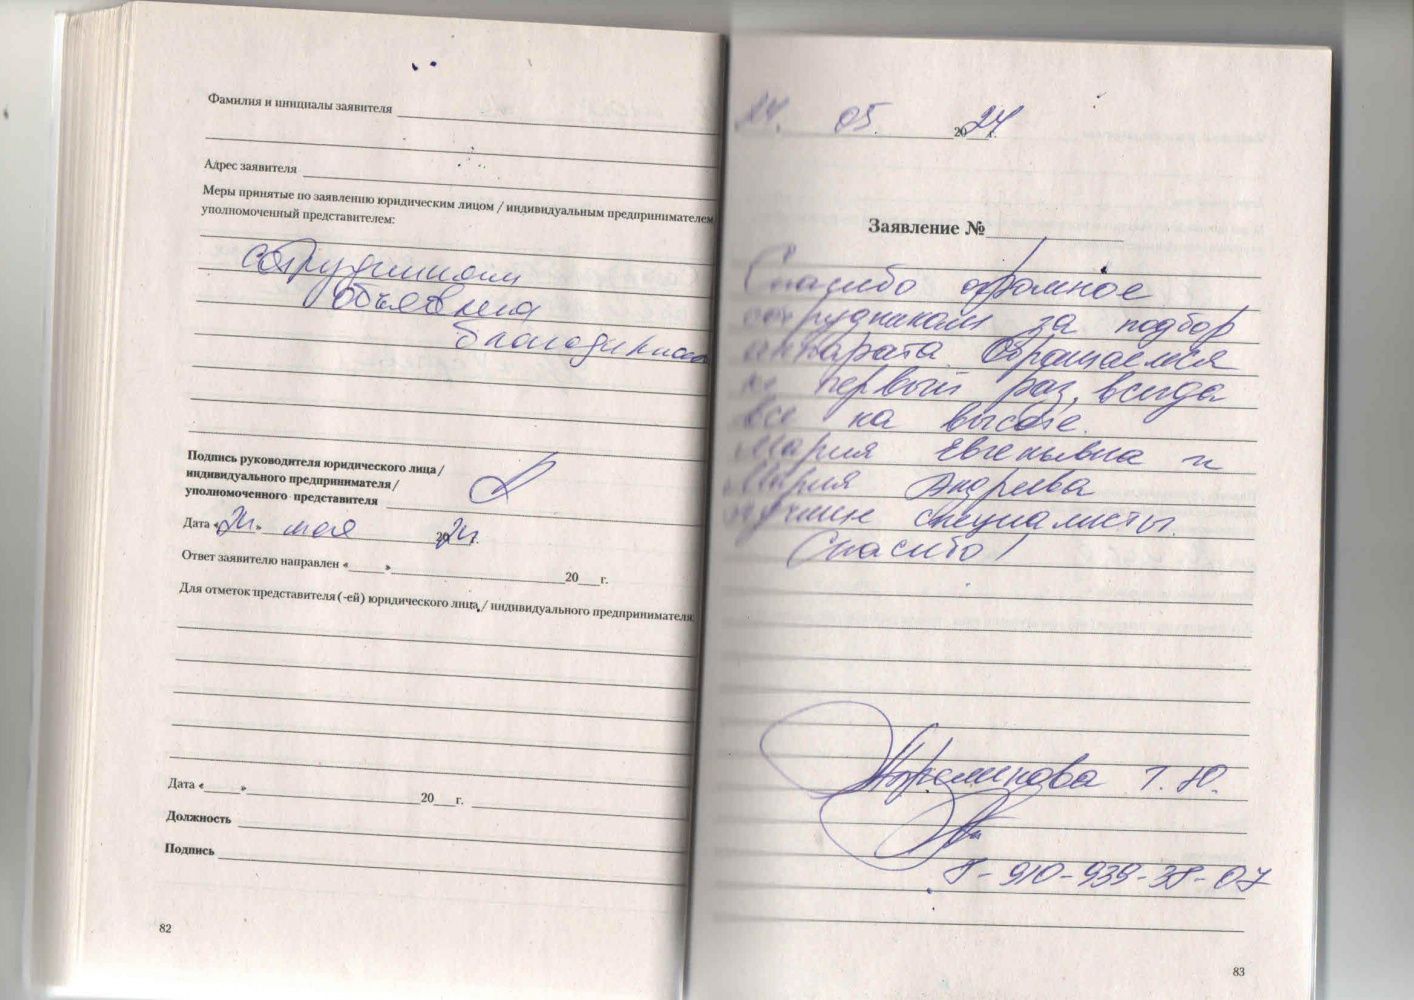 Фамилия и инициалы заявителя
Адрес заявителя
Меры принятые по заявлению юридическим лицом / индивидуальным предпринимателем
уполномоченный представителем:
сотрудникам
объявлена
благодарность
Подпись руководителя юридического лица /
индивидуального предпринимателя /
уполномоченного представителя
Дата «24» мая 2024г.
Ответ заявителю направлен «___»___20___г.
Для отметок представителя (-ей) юридического лица / индивидуального предпринимателя
Дата «___»___20___г.
Должность
Подпись
82
24. 05. 2024г.
Заявление №
Спасибо огромное
сотрудникам за подбор
аппарата Обращаемся
не первый раз, всегда
все на высоте.
Мария Евгеньевна и
Мария Андреевна
лучшие специалисты.
Спасибо!
Т.Ю.
8-910-939-38-07
83